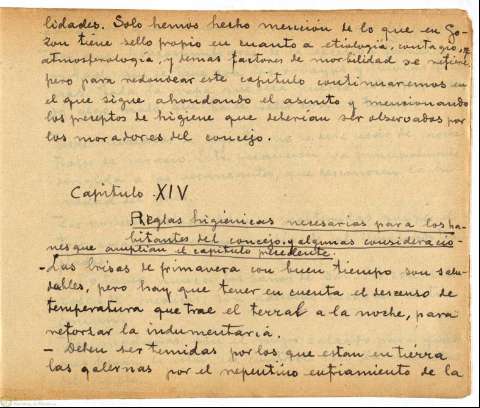 lidades. Solo hemos hecho mención de lo que en Go-
zon tiene sello propio en cuanto a etiología, contagio,
atmosferología, y demas factores de morbilidad se refiere,
pero para redondear este capitulo continuaremos en
el que sigue ahondando el asunto y mencionando
los preceptos de higiene que deberian ser observados por
los moradores del concejo.
Capitulo XIV
Reglas higiénicas necesarias para los ha-
bitantes del concejo, y algunas consideracio-
nes que amplian el capitulo precedente.
- Las brisas de primavera con buen tiempo son salu-
dables, pero hay que tener en cuenta el descenso de
temperatura que trae el terral a la noche, para
reforsar la indumentária.
- Deben ser temidas por los que estan en tierra
las galernas por el repentino enfriamiento de la